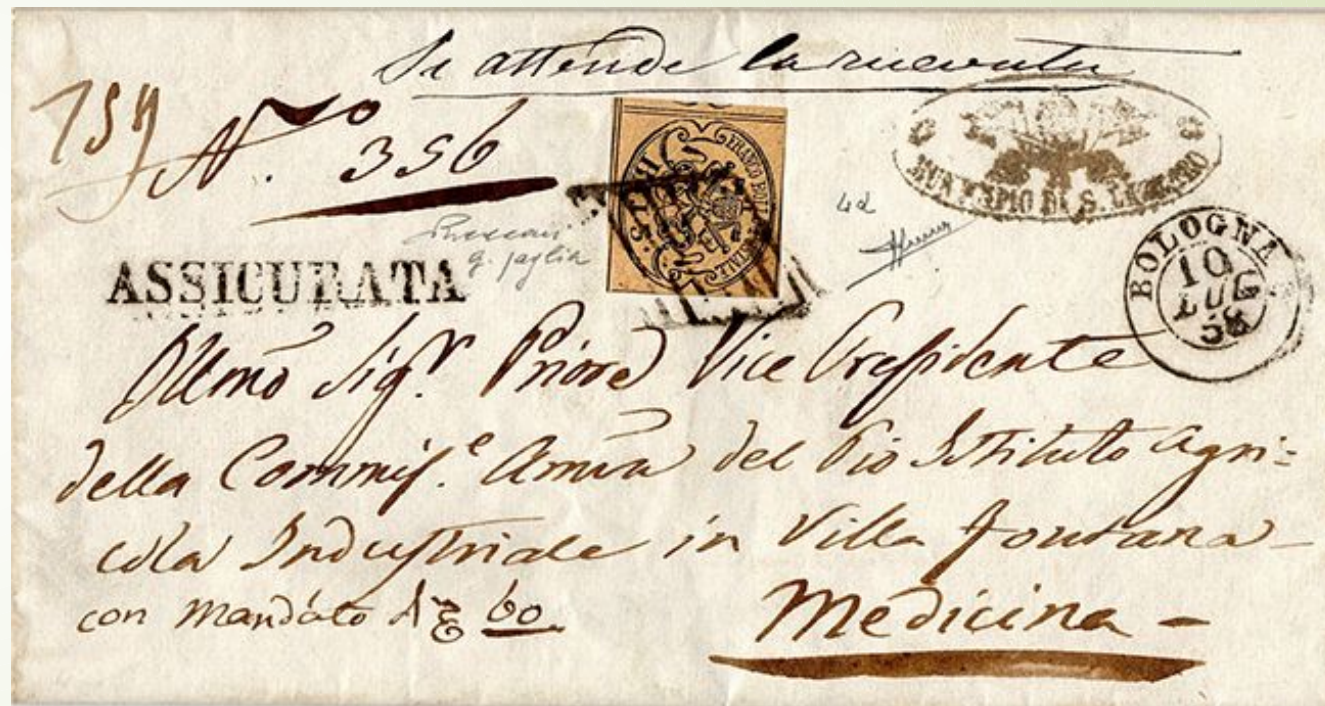 Si attende la ricevuta
759
N.° 356
MUNICIPIO DI S. LAZZARO
FRANCO BOLLO POSTALE
BAJ
4d
g. paglia
ASSICURATA
BOLOGNA
10
LUG
58
Illmo Sigr. Priore Vice Presidente
della Commise. Amm.va del Pio Istituto Agri=
cola Industriale in Villa Fontana
con mandato di £ 60
Medicina -